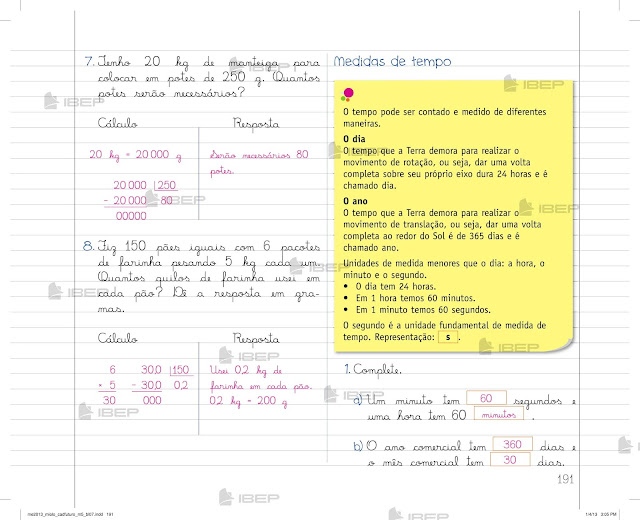 7. Tenho 20 kg de manteiga para
colocar em potes de 250 g. Quantos
potes serão necessários?
Cálculo
Resposta
20 kg = 20 000 g
20 000 250
- 20 000 80
00000
Serão necessários 80
potes.
8. Fiz 150 pães iguais com 6 pacotes
de farinha pesando 5 kg cada um.
Quantos quilos de farinha usei em
cada pão? Dê a resposta em gra-
mas.
Cálculo
Resposta
6
× 5
30
30,0 150
- 30,0 0,2
000
Usei 0,2 kg de
farinha em cada pão.
0,2 kg = 200 g
Medidas de tempo
O tempo pode ser contado e medido de diferentes
maneiras.
O dia
O tempo que a Terra demora para realizar o
movimento de rotação, ou seja, dar uma volta
completa sobre seu próprio eixo dura 24 horas e é
chamado dia.
O ano
O tempo que a Terra demora para realizar o
movimento de translação, ou seja, dar uma volta
completa ao redor do Sol é de 365 dias e é
chamado ano.
Unidades de medida menores que o dia: a hora, o
minuto e o segundo.
• O dia tem 24 horas.
• Em 1 hora temos 60 minutos.
• Em 1 minuto temos 60 segundos.
O segundo é a unidade fundamental de medida de
tempo. Representação: s .
1. Complete.
a) Um minuto tem 60 segundos e
uma hora tem 60 minutos .
b) O ano comercial tem 360 dias e
o mês comercial tem 30 dias.
191
IBEP
IBEP
IBEP
IBEP
IBEP
IBEP
IBEP
IBEP
IBEP
IBEP
IBEP
IBEP
IBEP
1/4/13 3:05 PM